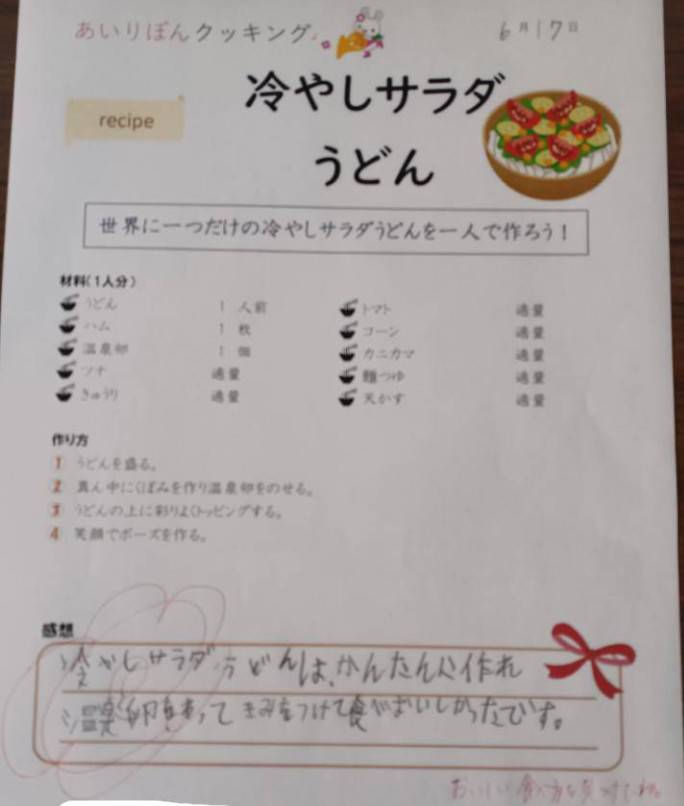 あいりぽんクッキング
6月17日
recipe
冷やしサラダ
うどん
世界に一つだけの冷やしサラダうどんを一人で作ろう！
材料(1人分)
うどん 1 人前
ハム 1 枚
温泉卵 1 個
ツナ 適量
きゅうり 適量
トマト 適量
コーン 適量
カニカマ 適量
麺つゆ 適量
天かす 適量
作り方
1 うどんを盛る。
2 真ん中にくぼみを作り温泉卵をのせる。
3 うどんの上に彩りよくトッピングする。
4 笑顔でポーズを作る。
感想
冷やしサラダうどんは、かんたんに作れ
温泉卵をわって きみをつけて食べおいしかったです。
おいしい食べ方を見つけたね